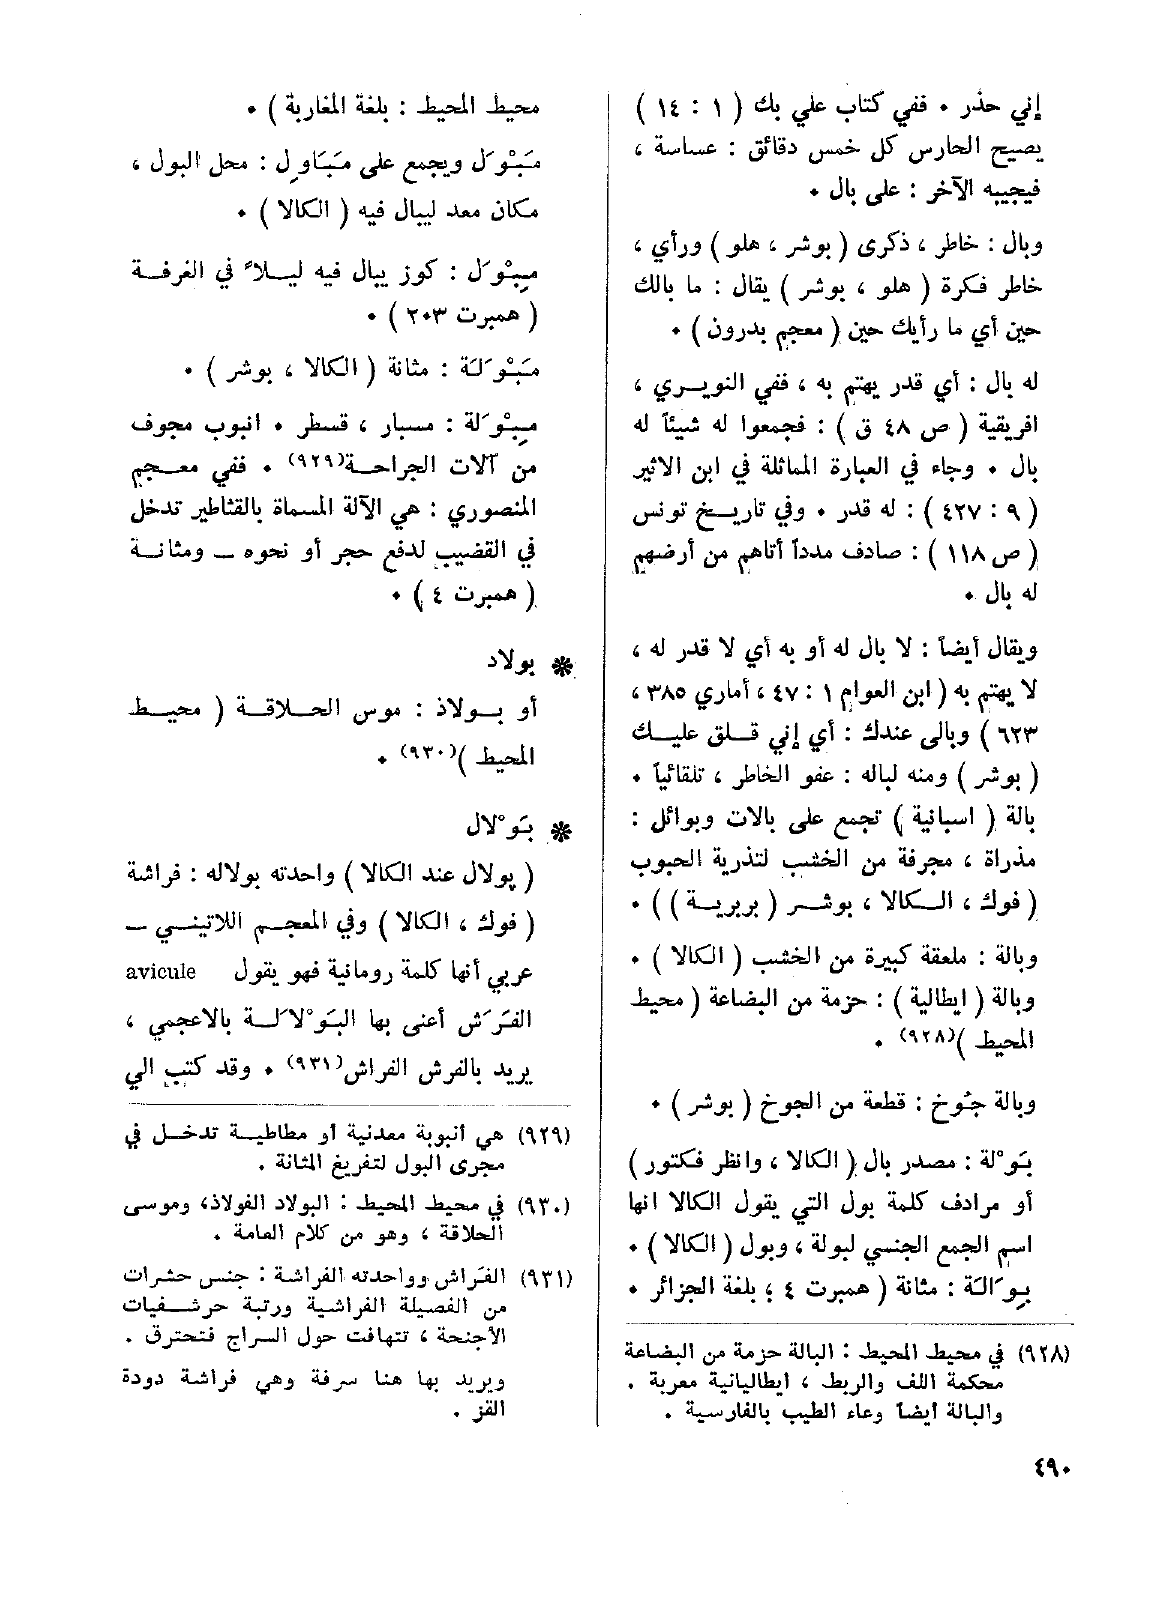 إني حذر ٠ ففي كتاب علي بك ( ١ : ١٤ )
يصيح الحارس كل خمس دقائق : عساسة ،
فيجيبه الآخر : على بال ٠
وبال : خاطر ، ذكرى ( بوشر ، هلو ) ورأي ،
خاطر فكرة ( هلو ، بوشر ) يقال : ما بالك
حين أي ما رأيك حين ( معجم بدرون ) ٠
له بال : أي قدر يهتم به ، ففي النويري ،
افريقية ( ص ٤٨ ق ) : فجمعوا له شيئاً له
بال ٠ وجاء في العبارة المماثلة في ابن الاثير
( ٩ : ٤٢٧ ) : له قدر ٠ وفي تاريخ تونس
( ص ١١٨ ) : صادف مدداً أتاهم من أرضهم
له بال ٠
ويقال أيضاً : لا بال له أو به أي لا قدر له ،
لا يهتم به ( ابن العوام ١ : ٤٧ ، أماري ٣٨٥ ،
٦٢٣ ) وبالى عندك : أي إني قلق عليك
( بوشر ) ومنه لباله : عفو الخاطر ، تلقائياً ٠
بالة ( اسبانية ) تجمع على بالات وبوائل :
مذراة ، مجرفة من الخشب لتذرية الحبوب
( فوك ، الكالا ، بوشر ( بربرية ) ) ٠
وبالة : ملعقة كبيرة من الخشب ( الكالا ) ٠
وبالة ( ايطالية ) : حزمة من البضاعة ( محيط
المحيط )(٩٢٨) ٠
وبالة جُوخ : قطعة من الجوخ ( بوشر ) ٠
بَوْلة : مصدر بال ( الكالا ، وانظر فكتور )
أو مرادف كلمة بول التي يقول الكالا انها
اسم الجمع الجنسي لبولة ، وبول ( الكالا ) ٠
بِوَالَة : مثانة ( همبرت ٤ ؛ بلغة الجزائر ٠
(٩٢٨) في محيط المحيط : البالة حزمة من البضاعة
محكمة اللف والربط ، ايطاليانية معربة .
والبالة أيضاً وعاء الطيب بالفارسية .
محيط المحيط : بلغة المغاربة ) ٠
مَبْوَل ويجمع على مَبَاوِل : محل البول ،
مكان معد ليبال فيه ( الكالا ) ٠
مِبْوَل : كوز يبال فيه ليلاً في الغرفة
( همبرت ٢٠٣ ) ٠
مَبْوَلَة : مثانة ( الكالا ، بوشر ) ٠
مِبْوَلة : مسبار ، قسطر ٠ انبوب مجوف
من آلات الجراحة(٩٢٩) ٠ ففي معجم
المنصوري : هي الآلة المسماة بالقثاطير تدخل
في القضيب لدفع حجر أو نحوه – ومثانة
( همبرت ٤ ) ٠
❋ بولاد
أو بولاذ : موس الحلاقة ( محيط
المحيط )(٩٣٠) ٠
❋ بَوْلال
( پولال عند الكالا ) واحدته بولاله : فراشة
( فوك ، الكالا ) وفي المعجم اللاتيني –
عربي أنها كلمة رومانية فهو يقول avicule
الفَرَش أعنى بها البَوْلاَلَة بالاعجمي ،
يريد بالفرش الفراش(٩٣١) ٠ وقد كتب الي
(٩٢٩) هي أنبوبة معدنية أو مطاطية تدخل في
مجرى البول لتفريغ المثانة .
(٩٣٠) في محيط المحيط : البولاد الفولاذ، وموسى
الحلاقة ، وهو من كلام العامة .
(٩٣١) الفَراش وواحدته الفراشة : جنس حشرات
من الفصيلة الفراشية ورتبة حرشفيات
الأجنحة ، تتهافت حول السراج فتحترق .
ويريد بها هنا سرفة وهي فراشة دودة
القز .
٤٩٠